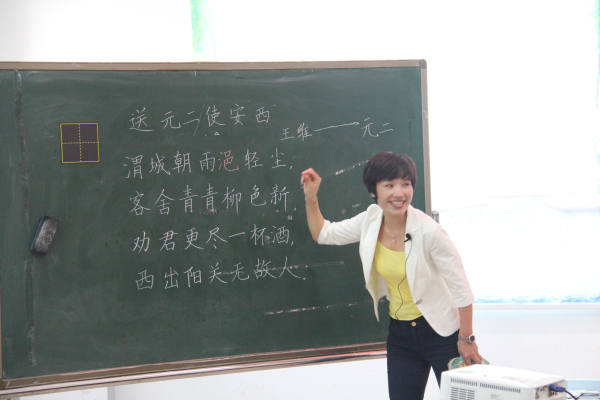 送元二/使安西
王维→元二
渭城朝雨浥轻尘,
客舍青青柳色新。
劝君更尽一杯酒,
西出阳关无故人。